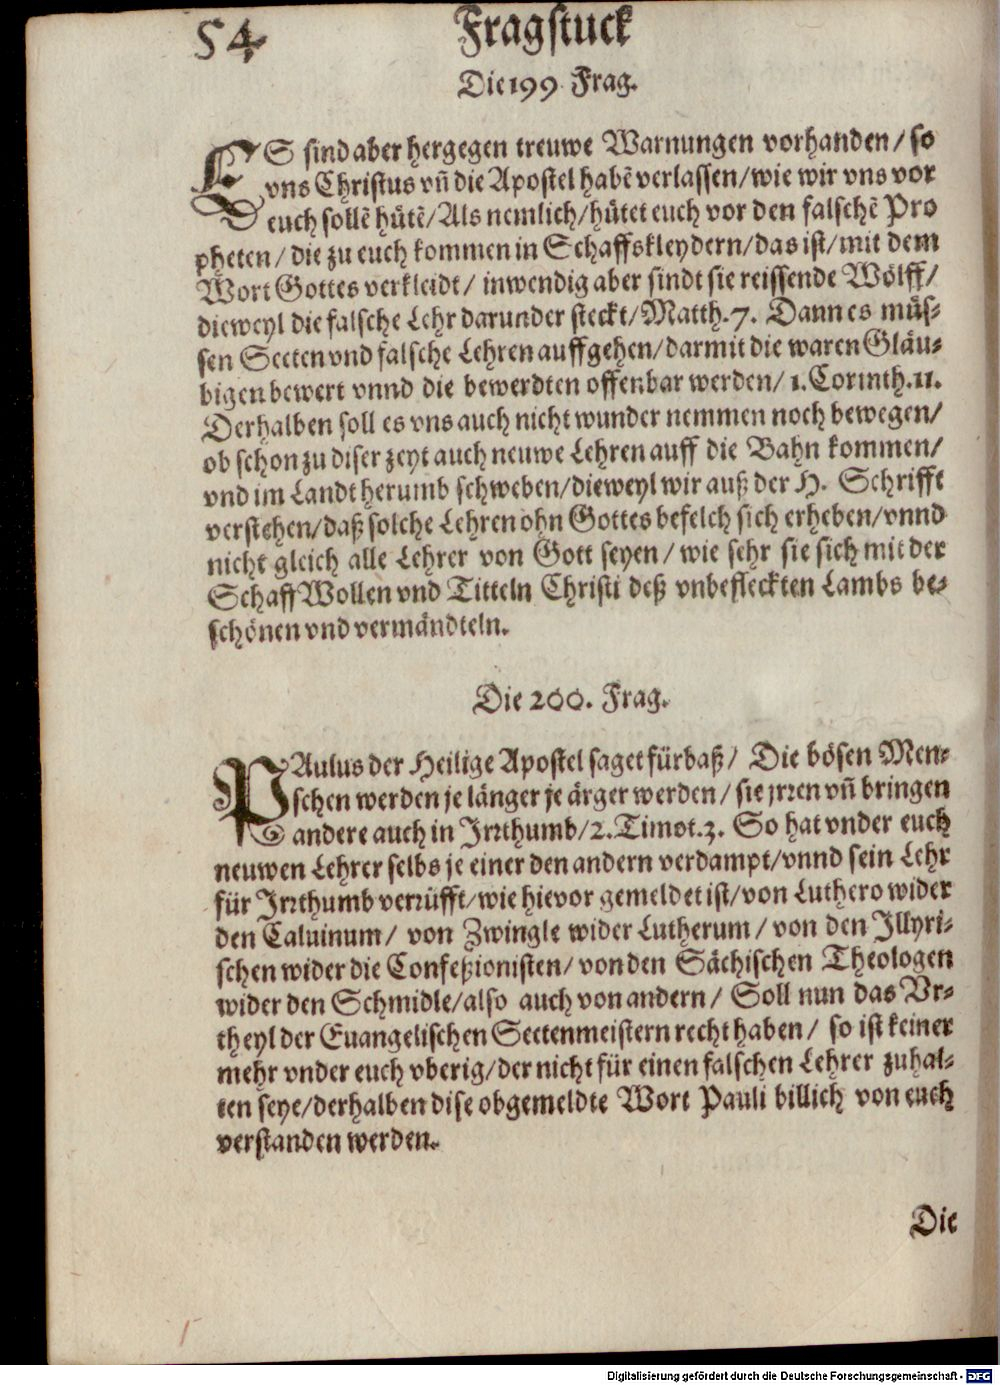 54
Fragstuck
Die 199 Frag.
ES sind aber hergegen treuwe Warnungen vorhanden / so
vns Christus vñ die Apostel habẽ verlassen / wie wir vns vor
euch sollẽ hütẽ / Als nemlich / hütet euch vor den falschẽ Pro
pheten / die zu euch kommen in Schaffskleydern / das ist / mit dem
Wort Gottes verkleidt / inwendig aber sindt sie reissende Wölff /
dieweyl die falsche Lehr darunder steckt / Matth. 7. Dann es müs-
sen Secten vnd falsche Lehren auffgehen / darmit die waren Gläu-
bigen bewert vnnd die bewerdten offenbar werden / 1. Corinth. 11.
Derhalben soll es vns auch nicht wunder nemmen noch bewegen /
ob schon zu diser zeyt auch neuwe Lehren auff die Bahn kommen /
vnd im Landt herumb schweben / dieweyl wir auß der H. Schrifft
verstehen / daß solche Lehren ohn Gottes befelch sich erheben / vnnd
nicht gleich alle Lehrer von Gott seyen / wie sehr sie sich mit der
Schaff Wollen vnd Titteln Christi deß vnbefleckten Lambs be-
schönen vnd vermändteln.
Die 200. Frag.
PAulus der Heilige Apostel saget fürbaß / Die bösen Men-
schen werden je länger je ärger werden / sie jrren vñ bringen
andere auch in Irrthumb / 2. Timot. 3. So hat vnder euch
neuwen Lehrer selbs je einer den andern verdampt / vnnd sein Lehr
für Irrthumb verrüfft / wie hievor gemeldet ist / von Luthero wider
den Caluinum / von Zwingle wider Lutherum / von den Illyri-
schen wider die Confeßionisten / von den Sächischen Theologen
wider den Schmidle / also auch von andern / Soll nun das Vr-
theyl der Euangelischen Sectenmeistern recht haben / so ist keiner
mehr vnder euch vberig / der nicht für einen falschen Lehrer zuhal-
ten seye / derhalben dise obgemeldte Wort Pauli billich von euch
verstanden werden.
Die
Digitalisierung gefördert durch die Deutsche Forschungsgemeinschaft - DFG